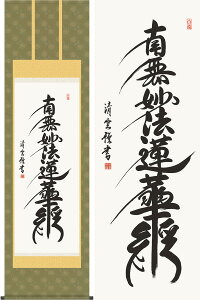 南無妙法蓮華経
清雲謹書
南無妙法蓮華経
清雲謹書